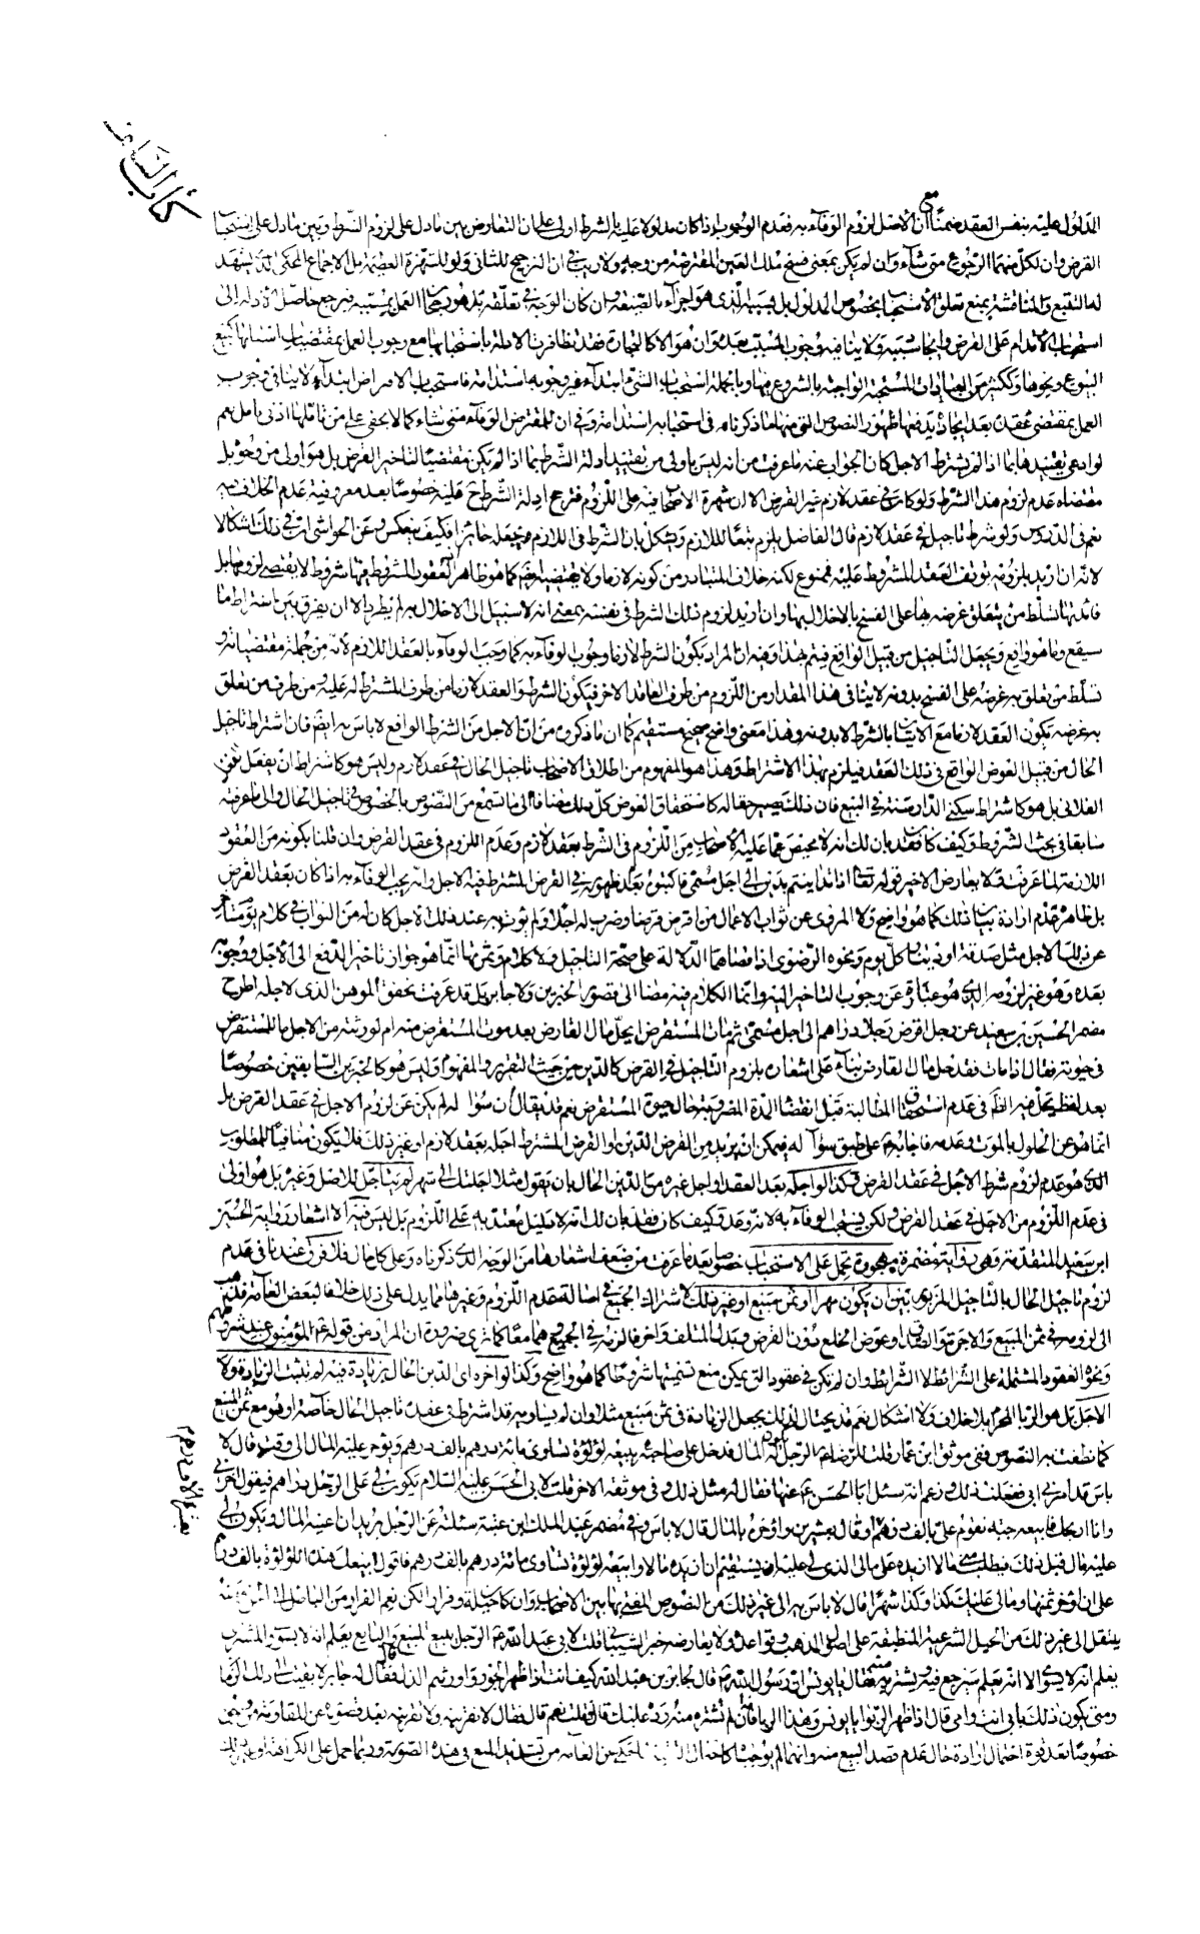 كتاب المتاجر
المدلول عليه بنفس العقد ضمنًا ان الاصل لزوم الوفاء به فقدم الوجوب اذا كان مدلولا عليه بالشرط اولى على ان التعارض بين ما دل على لزوم الشرط وبين ما دل على استحباب
القرض وان لكل منهما الرجوع متى شاء وان لم يكن بمعنى فسخ ملك العين المقترضة من وجه ولا ريب في ان الترجيح للثاني ولو للشهرة العظيمة بل الاجماع المحكي الذي يشهد
له التتبع والمناقشة بمنع تعلق الاستحباب بخصوص المدلول بل بسببه الذي هو اجراء الصيغة وان كان الوجه في تعلقه به هو رجحان العمل بمسببه فيرجع حاصل الادلة الى
استحباب الاقدام على القرض وايجاد سببه ولا ينافيه وجوب المسبب بعده وان هو الا كالتجارة فقد تظافرت الادلة باستحبابها مع وجوب العمل بمقتضيات اسبابها كبيع
البيوع ونحوها وككثير من العبادات المستحبة الواجبة بالشروع فيها وبالجملة استحباب الشيء ابتداء غير وجوبه استدامة فاستحباب الاقراض ابتداء لا ينافي وجوب
العمل بمقتضى عقده بعد ايجاده يدفعها ظهور النصوص التي منها ما ذكرناه في استحبابه استدامة وفي ان للمقترض الوفاء متى شاء كما لا يخفى على من تاملها ادنى تامل نعم
لو ادعى تقييدها بما اذا لم يشترط الاجل كان الجواب عنه ما عرفت من انه ليس باولى من تقييد ادلة الشرط بما اذا لم يكن مقتضيًا لتاخير القرض بل هو اولى من وجوه بل
مقتضاه عدم لزوم هذا الشرط ولو كان في عقد لازم غير القرض الا ان شهرة الاصحاب فيه على اللزوم فترجح ادلة الشرط ح عليه خصوصًا بعد معروفية عدم الخلاف فيه
نعم في الدروس ولو شرط تاجيله في عقد لازم قال الفاضل يلزم تبعًا للازم ويشكل بان الشرط في اللازم يجعله جائزا فكيف ينعكس وعن الحواشي ان في ذلك اشكالا
لانه ان اريد بلزومه توقف العقد المشروط عليه فممنوع لكنه خلاف المتبادر من كونه لازما ولا يقتضيه كما هو ظاهر العقود المشروط فيها شروط لا يقتضي لزومها بل
فائدتها تسلط من يتعلق غرضه بها على الفسخ بالاخلال بها وان اريد لزوم ذلك الشرط في نفسه بمعنى انه لا سبيل الى الاخلال به لم يطرد الا ان يفرق بين اشتراط ما
سيقع وما هو واقع ويجعل التاجيل من قبيل الواقع فيتم هذا وفيه ان المراد بكون الشرط لازما وجوب الوفاء به كما وجب الوفاء بالعقد اللازم لانه من جملة مقتضياته و
تسلط من تعلق به غرضه على الفسخ بدونه لا ينافي هذا المقدار من اللزوم من طرف العاقد الاخر فيكون الشرط والعقد لازما من طرف المشترط عليه ومن طرف من تعلق
به غرضه يكون العقد لازما مع الاتيان بالشرط لا بدونه وهذا معنى واضح صحيح مستقيم كما ان ما ذكروه من ان الاجل من الشرط الواقع لا باس به ايضا فان اشتراط تاجيل
الحال من قبيل العوض الواقع في ذلك العقد فيلزم بهذا الاشتراط وهذا هو المفهوم من اطلاق الاصحاب تاجيل الحال في عقد لازم وليس هو كاشتراط ان يفعل الفعل
الفلاني بل هو كاشتراط سكنى الدار سنة في البيع فان ذلك يصير حقا له كاستحقاق العوض كل ذلك مضافا الى ما تسمع من النصوص بالخصوص في تاجيل الحال والى ما عرفته
سابقا في بحث الشروط وكيف كان فقد بان لك انه لا محيص عما عليه الاصحاب من اللزوم في الشرط بعقد لازم وعدم اللزوم في عقد القرض وان قلنا بكونه من العقود
اللازمة لما عرفت ولا يعارض الاخير قوله تعالى اذا تداينتم بدين الى اجل مسمى فاكتبوه بعد ظهوره في القرض المشترط فيه الاجل وانه يجب الوفاء به اذا كان بعقد القرض
بل ظاهره عدم ارادة بيان ذلك كما هو واضح ولا المروي عن ثواب الاعمال من اقرض قرضا وضرب له اجلا ولم يؤت به عند ذلك الاجل كان له من الثواب في كل يوم يتاخر
عن ذلك الاجل مثل صدقة دينار كل يوم ونحوه الرضوي اذ اقصاهما الدلالة على صحة التاجيل ولا كلام وثمرتها انما هو جواز تاخير الدفع الى الاجل ووجوبه
بعده وهو غير لزومه الذي هو عبارة عن وجوب التاخير اليه وانما الكلام فيه مضافا الى قصور الخبرين ولا جابر بل قد عرفت تحقق الموهن الذي لاجله اطرح
مضمر الحسين بن سعيد عن رجل اقرض رجلا دراهم الى اجل مسمى ثم مات المستقرض ايحل مال القارض بعد موت المستقرض منه ام لورثته من الاجل ما للمستقرض
في حيوته فقال اذا مات فقد حل مال القارض بناء على اشعاره بلزوم التاجيل في القرض كالدين من حيث التقرير والمفهوم وليس هو كالخبرين السابقين خصوصًا
بعد لفظ يحل فيه الظاهر في عدم استحقاق المطالبة قبل انقضاء المدة المضروبة حال حيوة المستقرض نعم قد يقال ان سؤاله لم يكن عن لزوم الاجل في عقد القرض بل
انما هو عن الحلول بالموت وعدمه فاجابه على طبق سؤاله فيمكن ان يريد من القرض الدين او القرض المشترط اجله بعقد لازم او غير ذلك فلا يكون منافيًا للمطلوب
الذي هو عدم لزوم شرط الاجل في عقد القرض وكذا لو اجله بعد العقد او اجل غيره من الدين الحال بان يقول مثلا اجلتك الى شهر لم يتاجل للاصل وغيره بل هو اولى
في عدم اللزوم من الاجل في عقد القرض ولكن يستحب الوفاء به لانه وعد وكيف كان فقد بان لك انه لا دليل يعتد به على اللزوم بل ليس فيه الا اشعار رواية الحسين
ابن سعيد المتقدمة وهي رواية مضمرة مهجورة تحمل على الاستحباب خصوصا بعد ما عرفت من ضعف اشعارها من الوجه الذي ذكرناه وعلى كل حال فلا فرق عندنا في عدم
لزوم تاجيل الحال بالتاجيل المزبور بين ان يكون مهرا او ثمن مبيع او غير ذلك لاشتراك الجميع في اصالة عدم اللزوم وغيرها مما يدل على ذلك خلافا لبعض العامة فذهب
الى لزومه في ثمن المبيع والاجرة والصداق وعوض الخلع دون القرض وبدل المتلف واخر فالزمه في الجميع وهما معًا كما ترى ضرورة ان المراد من قوله ع المؤمنون عند شروطهم
ونحوه العقود المشتملة على الشرائط لا الشرائط وان لم تكن في عقود التي يمكن منع تسميتها شروطًا كما هو واضح وكذا لو اخره اي الدين الحال بزيادة فيه لم يثبت الزيادة ولا
الاجل بل هو الربا المحرم بلا خلاف ولا اشكال نعم قد يحتال لذلك بجعل الزيادة في ثمن مبيع مثلا وان لم يساو به قد اشترط في عقده تاجيل الحال خاصة او هو مع ثمن المبيع
كما نطقت به النصوص ففي موثق ابن عمار قلت للرضا ع الرجل يكون له المال فدخل على صاحبه يبيعه لؤلؤة تساوى مائة درهم بالف درهم ويؤخر عليه المال الى وقت قال لا
باس قد امرني ابي ففعلت ذلك وزعم انه سئل ابا الحسن ع عنها فقال له مثل ذلك وفي موثقه الاخر قلت لابي الحسن عليه السلام يكون لي على الرجل دراهم فيقول اخرني
وانا اربحك فابيعه جبة تقوم على بالف درهم بعشرة الاف درهم او قال بعشرين واؤخره بالمال قال لا باس وفي مضمر عبد الملك ابن عتبة سئلته عن الرجل يريد ان اعينه المال ويكون لي
عليه مال قبل ذلك فيطلب مني مالا ازيده على مالي الذي لي عليه ايستقيم ان ازيده مالا وابيعه لؤلؤة تساوى مائة درهم بالف درهم فاقول ابيعك هذه اللؤلؤة بالف درهم
على ان اؤخر ثمنها ومالي عليك كذا وكذا شهرًا قال لا باس به الى غير ذلك من النصوص المفتى بها بين الاصحاب وان كان حيلة وفرارا لكن نعم الفرار من الباطل الى الحق
ينتقل الى غير ذلك من الحيل الشرعية المنطبقة على اصول المذهب وقواعده ولا يعارضه خبر الشيباني قلت لابي عبد الله ع الرجل يبيع المبيع والبايع يعلم انه لا يسوى والمشتري
يعلم انه لا يسوى الا انه يعلم سيرجع فيه فيشتريه منه فقال يا يونس ان رسول الله ص قال لجابر بن عبد الله كيف انت اذا ظهر الجور واورثهم الذل فقال له جابر لا بقيت الى ذلك الزمان
ومتى يكون ذلك بابي انت وامي قال اذا ظهر الربوا يا يونس وهذا الربا فان لم تشتره منه رده عليك قال قلت نعم قال فقال لا تقربنه ولا تقربنه بعد قصوره عن المقاومة من وجوه
خصوصًا بعد قوة احتمال ارادة حال عدم قصد البيع منه وانهما لم يوجباه
بعشرة الاف درهم